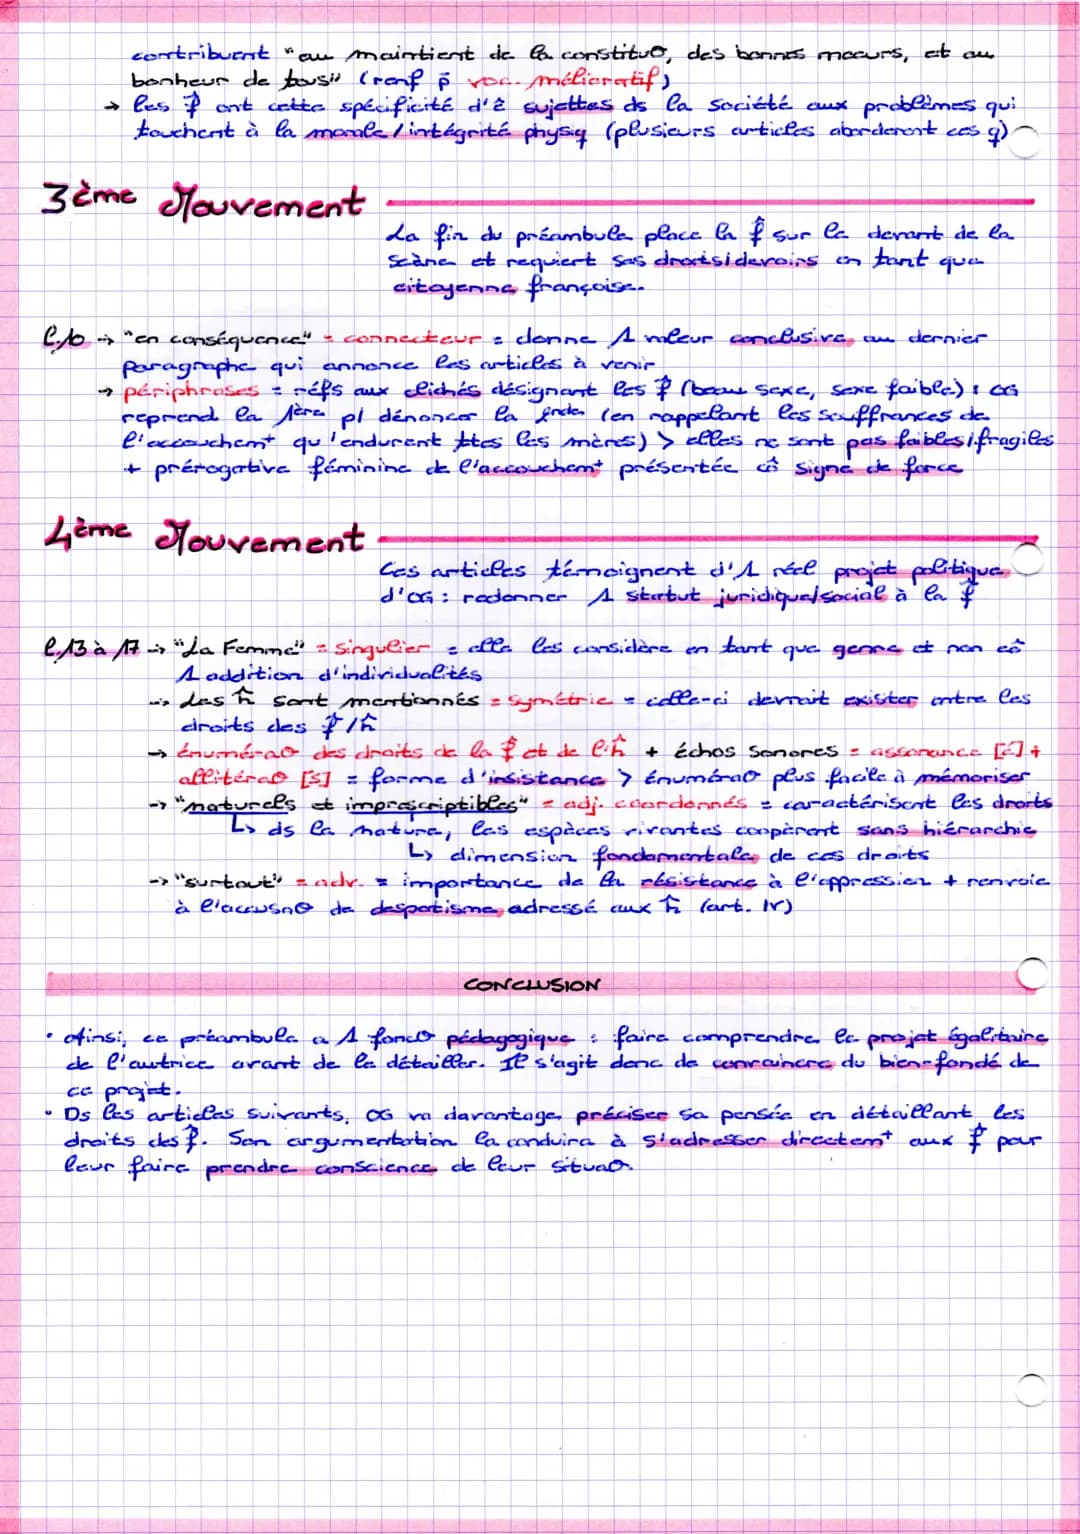 contribuent "au maintient de la constituo, des bonnes moeurs, et au
bonheur de tous" (renf p̄ voc. mélioratif)
→ les f̂ ont cette spécificité d'ê sujettes ds la société aux problèmes qui
touchent à la morale/intégrité physiq (plusieurs articles aborderont ces q)
3ème Mouvement
La fin du préambule place la f̂ sur le devant de la
scène et requiert ses droits/devoirs en tant que
citoyenne française.
l.10 → "en conséquence" = connecteur = donne 1 valeur conclusive au dernier
paragraphe qui annonce les articles à venir
→ périphrases = réfs aux clichés désignant les f̂ (beau sexe, sexe faible) : OG
reprend la 1ère pl dénoncer la 2nde (en rappelant les souffrances de
l'accouchemt qu'endurent ttes les mères) > elles ne sont pas faibles/fragiles
+ prérogative féminine de l'accouchemt présentée cô signe de force
4ème Mouvement
Ces articles témoignent d'1 réel projet politique
d'OG : redonner 1 statut juridique/social à la f̂
l.13 à 17 → "La Femme" = singulier = elle les considère en tant que genre et non cô
1 addition d'individualités
→ les ĥ sont mentionnés = symétrie = celle-ci devrait exister entre les
droits des f̂/ĥ
→ énumérao des droits de la f̂ et de l'ĥ + échos sonores = assonance [é] +
allitérao [s] = forme d'insistance > énumérao plus facile à mémoriser
→ "naturels et imprescriptibles" = adj. coordonnés = caractérisent les droits
↳ ds la nature, les espèces vivantes coopèrent sans hiérarchie
↳ dimension fondamentale de ces droits
→ "surtout" = adv. = importance de la résistance à l'oppression + renvoie
à l'accusao de despotisme adressé aux ĥ (art. IV)
CONCLUSION
• Ainsi, ce préambule a 1 foncο pédagogique : faire comprendre le projet égalitaire
de l'autrice avant de le détailler. Il s'agit donc de convaincre du bien-fondé de
ce projet.
• Ds les articles suivants, OG va davantage préciser sa pensée en détaillant les
droits des f̂. Son argumentation la conduira à s'adresser directemt aux f̂ pour
leur faire prendre conscience de leur situao.